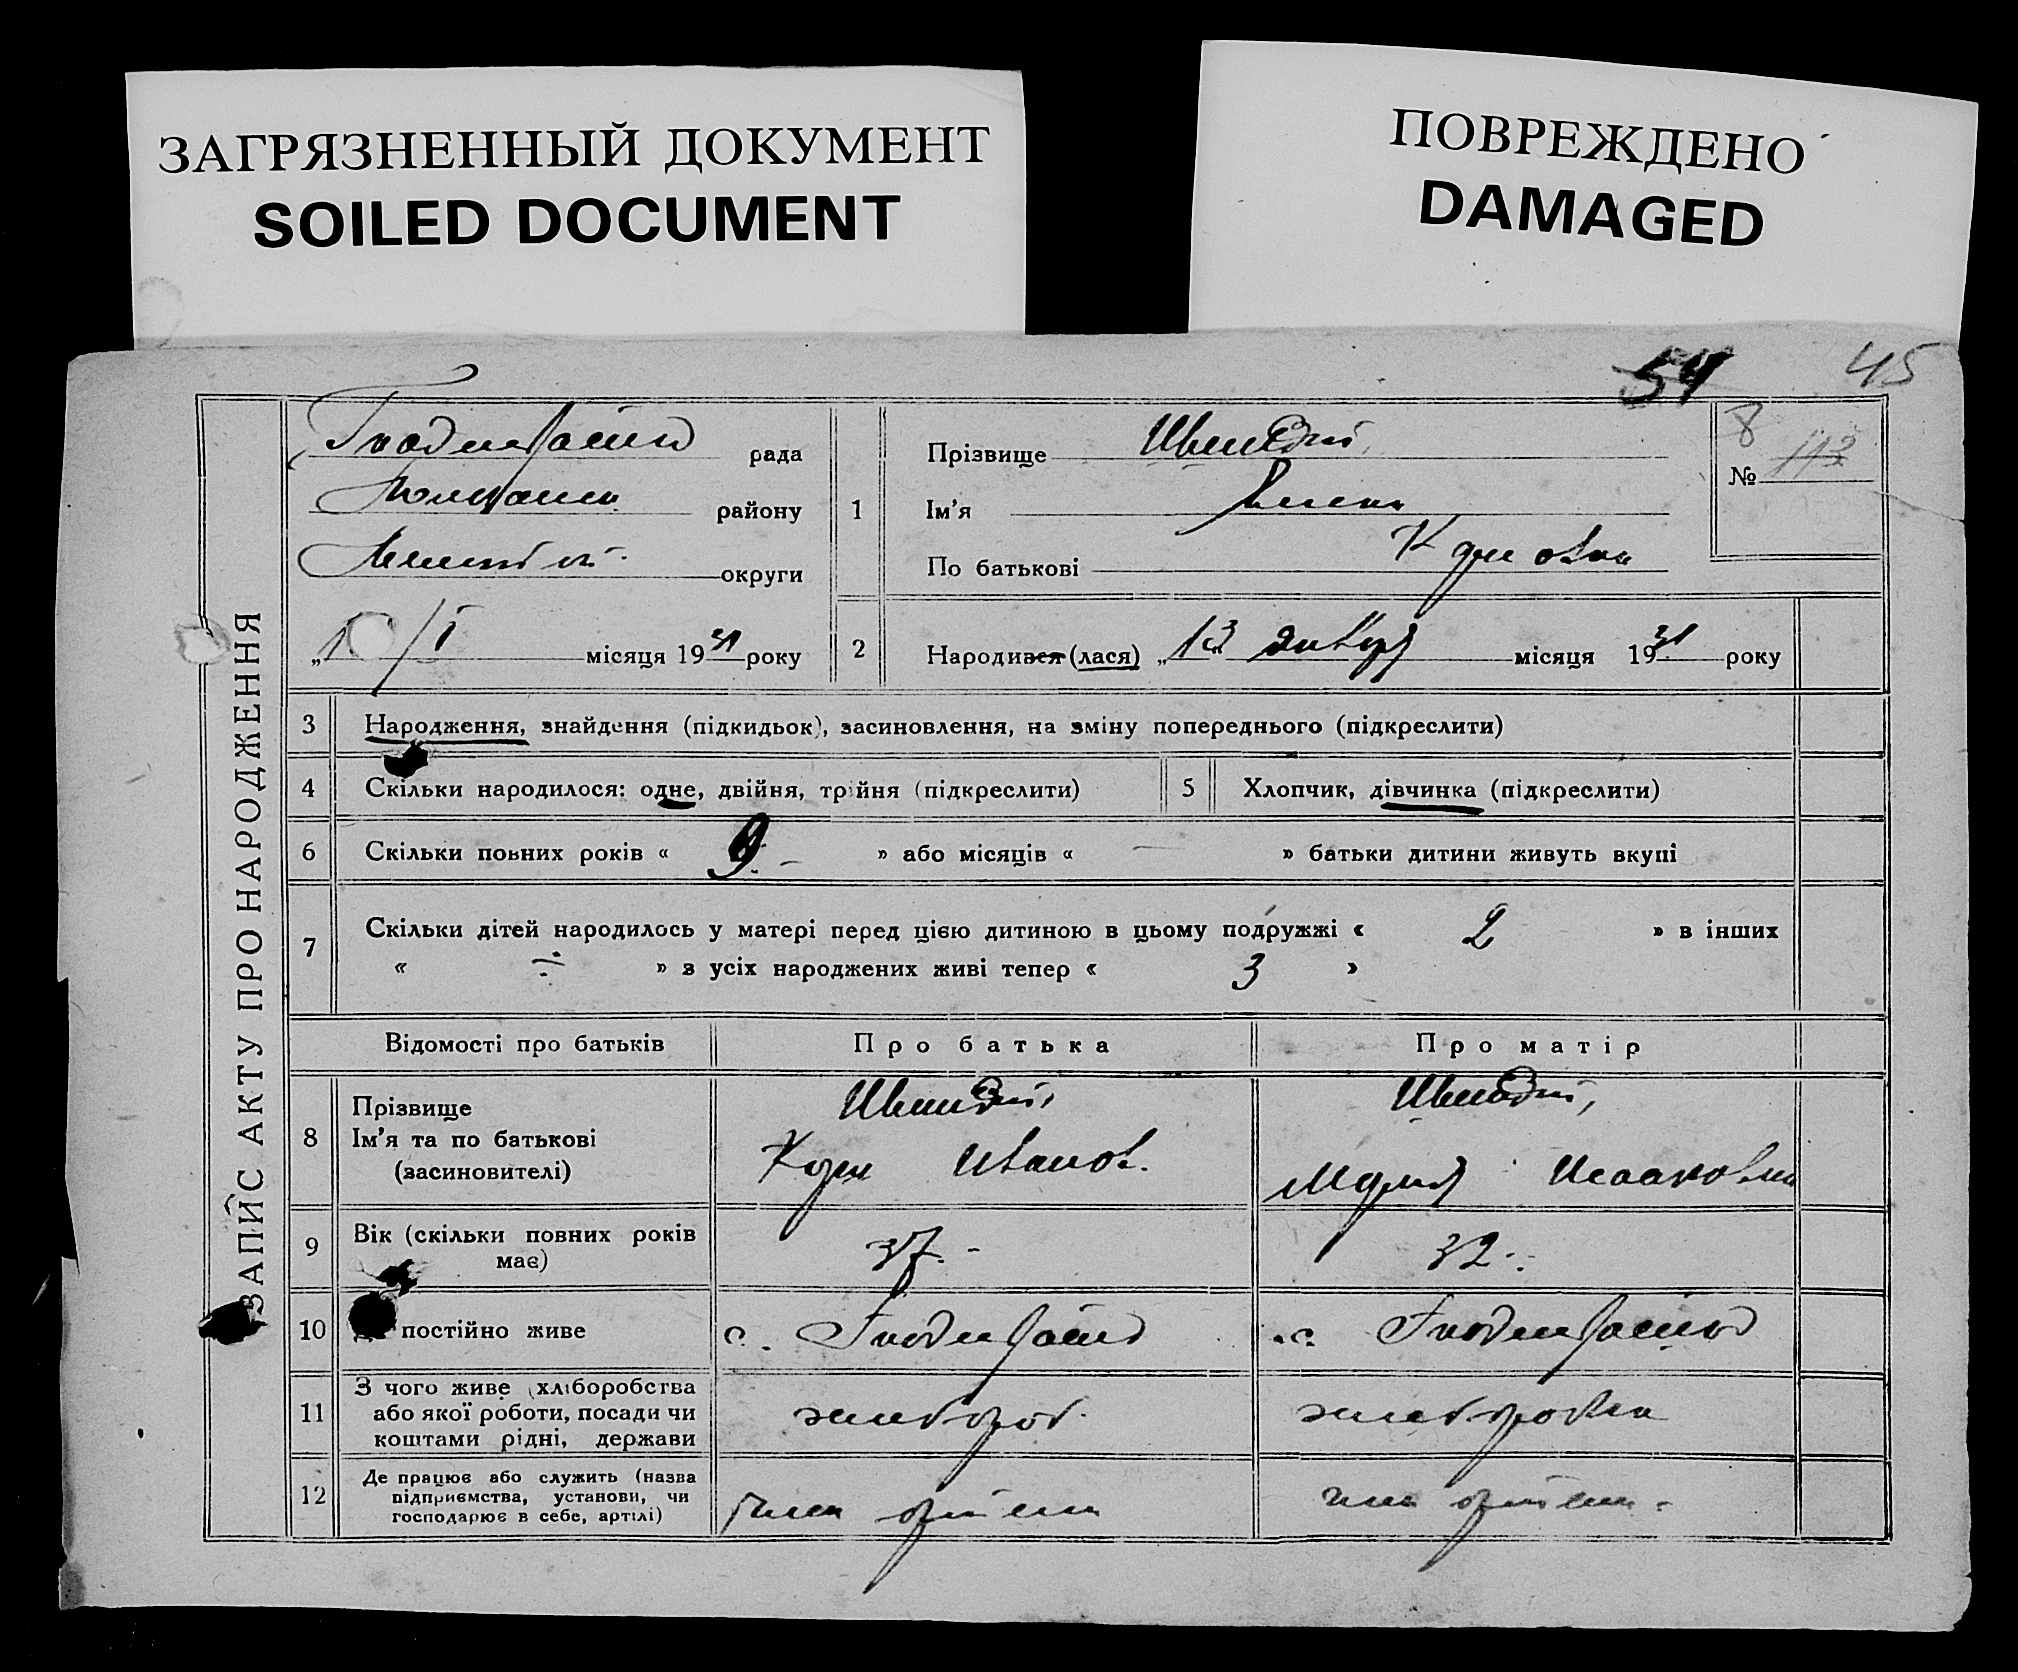 ЗАГРЯЗНЕННЫЙ ДОКУМЕНТ
SOILED DOCUMENT
ПОВРЕЖДЕНО
DAMAGED
54 45
ЗАПИС АКТУ ПРО НАРОДЖЕННЯ
рада
району
округи
„1 /I місяця 1931 року
1 Прізвище Швидкий
Ім'я
По батькові
8
№ 113
2 Народився (лася) „13" января місяця 1931 року
3 Народження, знайдення (підкидьок), засиновлення, на зміну попереднього (підкреслити)
4 Скільки народилося: одне, двійня, трійня (підкреслити)
5 Хлопчик, дівчинка (підкреслити)
6 Скільки повних років « 9. - » або місяців « — » батьки дитини живуть вкупі
7 Скільки дітей народилось у матері перед цією дитиною в цьому подружжі « 2 » в інших
« ÷ » з усіх народжених живі тепер « 3 »
Відомості про батьків Про батька Про матір
8 Прізвище
Ім'я та по батькові
(засиновителі)
Швидкий,
Иванов.
Швидкий,
Мария Исааковна
9 Вік (скільки повних років
має)
37. -
32. -
10 постійно живе
с.
с.
11 З чого живе (хліборобства
або якої роботи, посади чи
коштами рідні, держави
хлебороб.
хлеборобка
12 Де працює або служить (назва
підприємства, установи, чи
господарює в себе, артілі)
член артели
член артели.